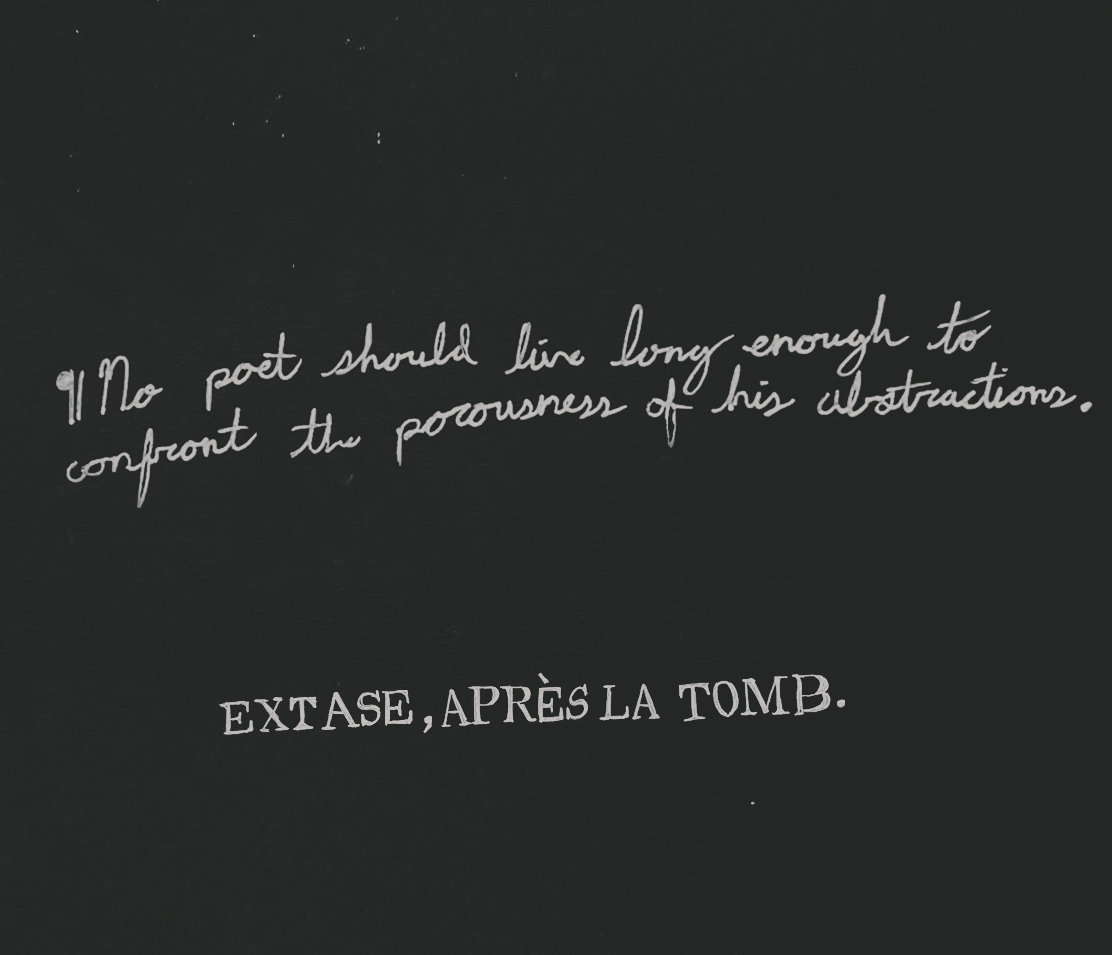 ¶ No poet should live long enough to
confront the porousness of his abstractions.
EXTASE, APRÈS LA TOMB.